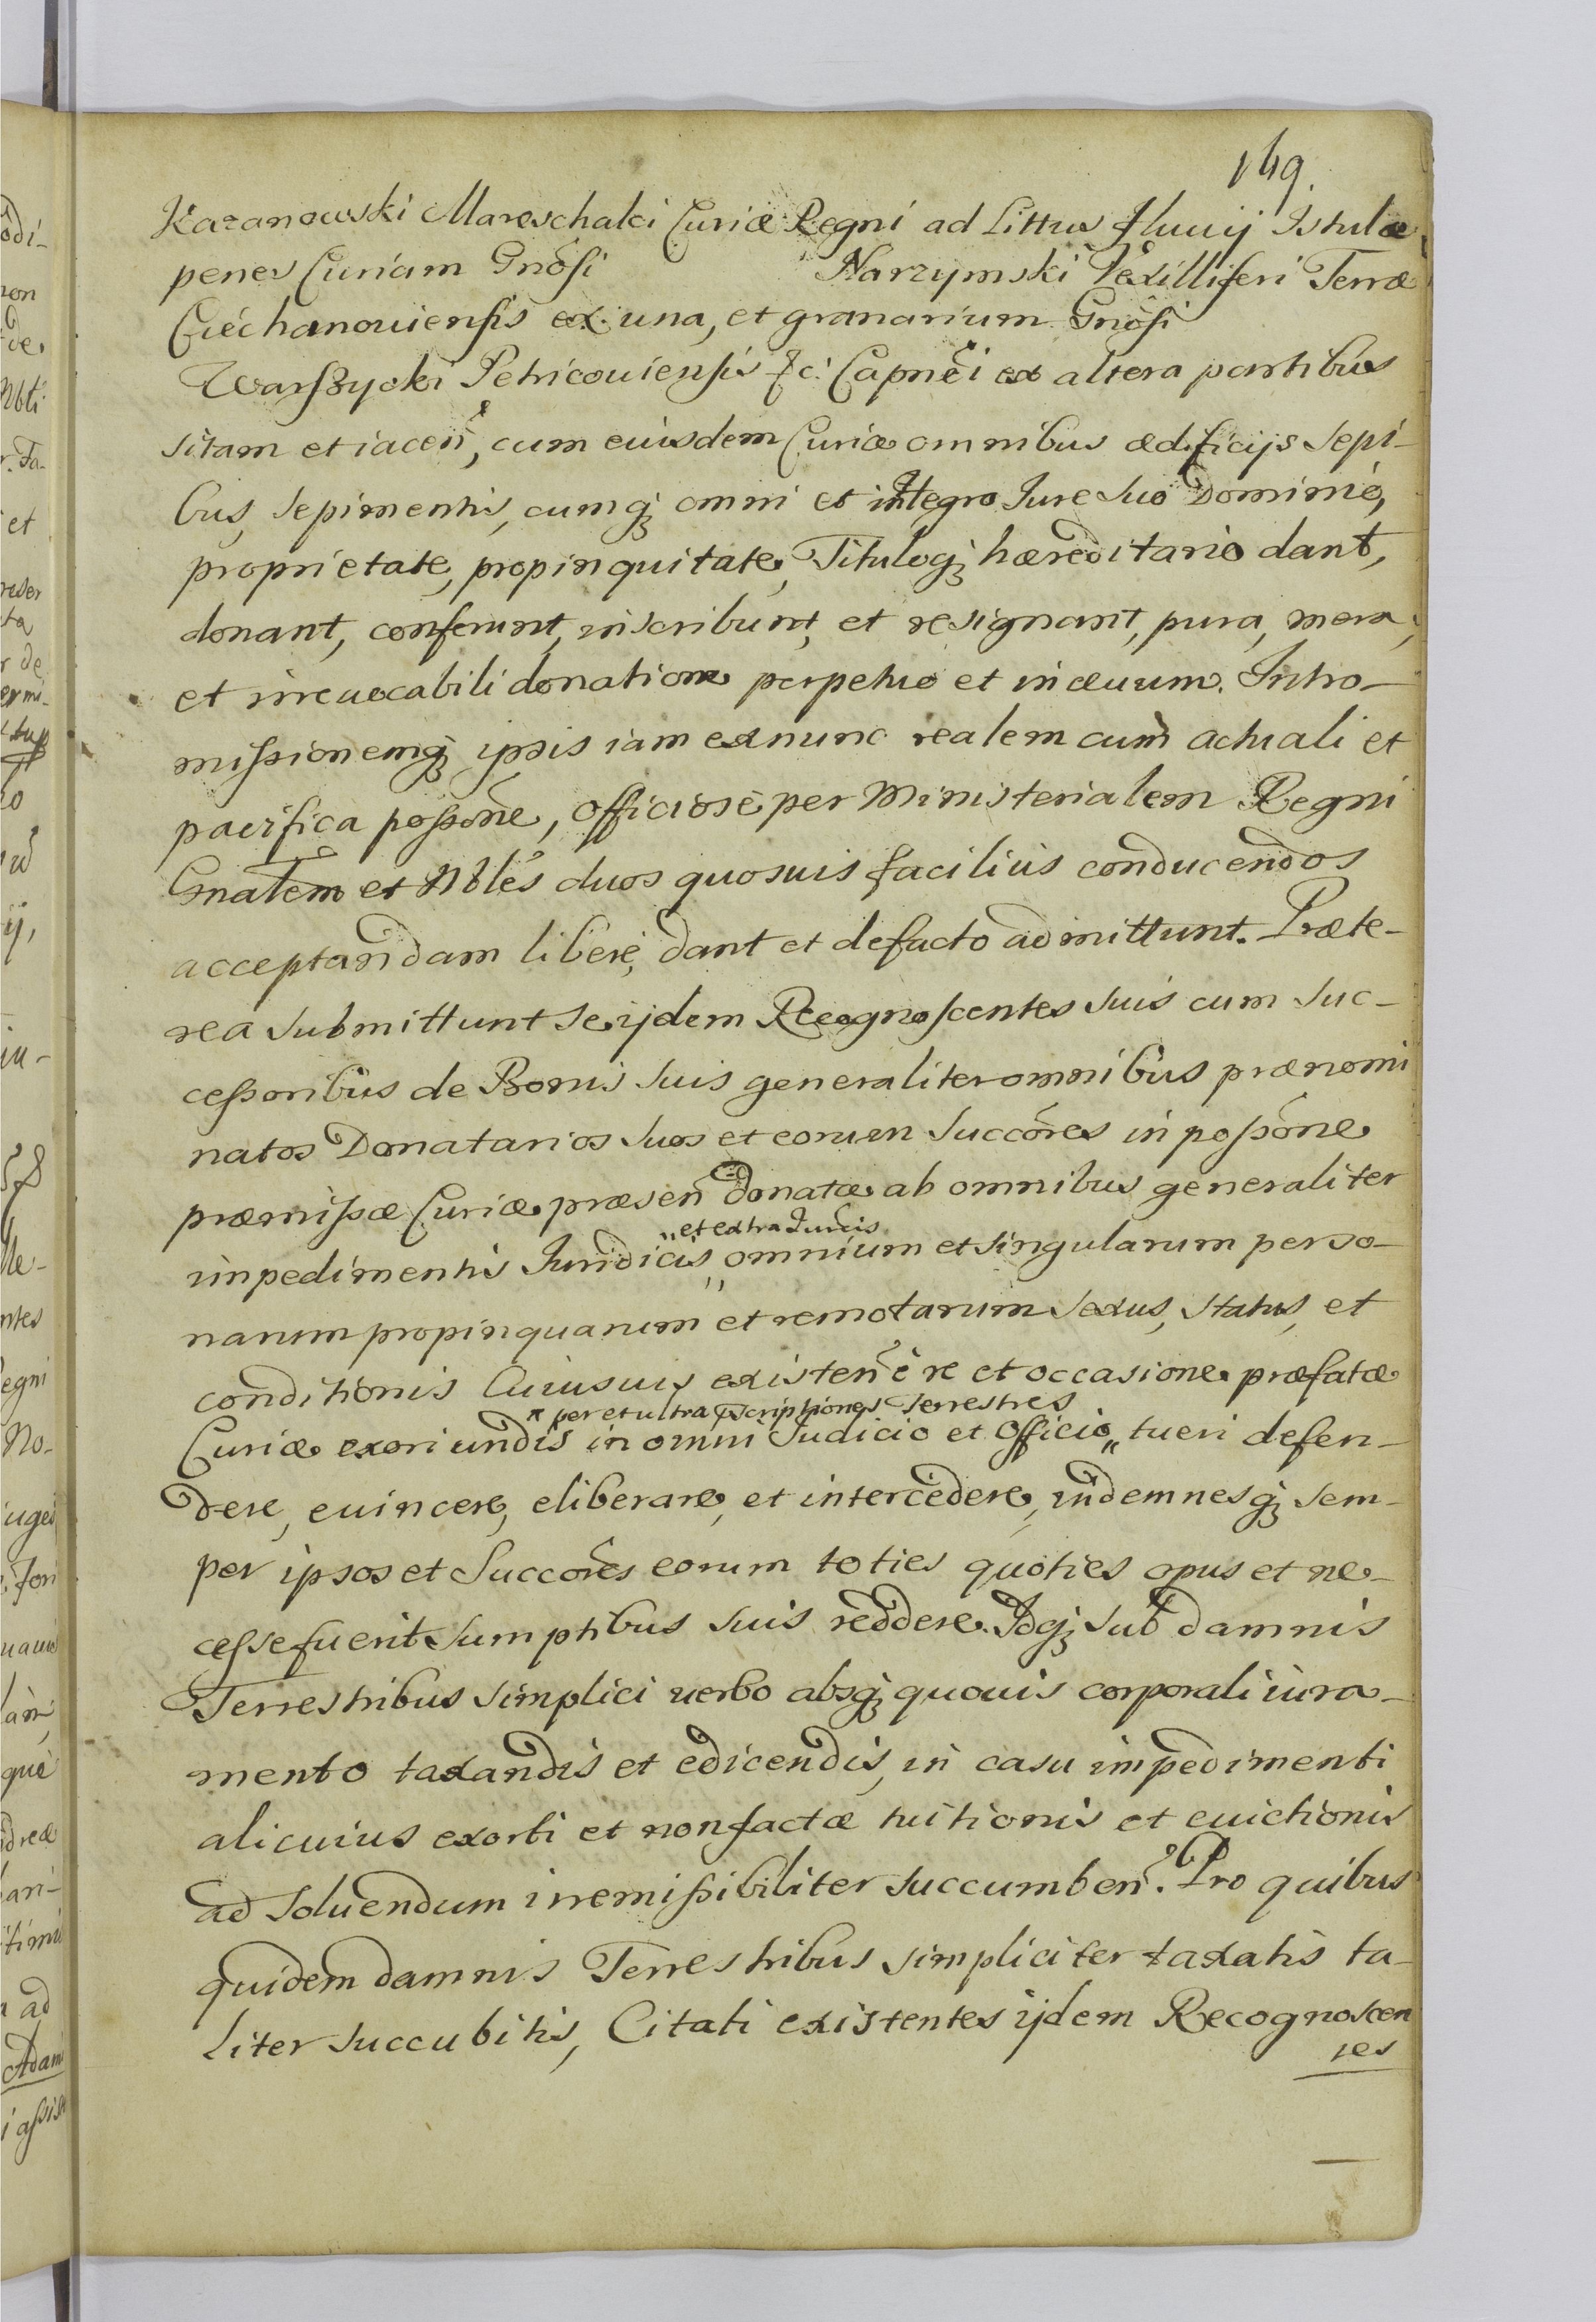 149.
Kazanowski Mareschalci Curiæ Regni ad Littus Fluuij Istulæ
penes Curiam Gnosi Narzymski Vexilliferi Terræ
Ciechanouiensis ex una, et granarium Gnosi
Warszycki Petricouiensis &c: Capnei ex altera partibus
sitam et iacen, cum eiusdem Curiæ omnibus ædificijs sepi-
bus, sepimentis, cumq; omni et integro Iure suo Dominio,
proprietate, propinquitate, Tituloq; hæreditario dant,
donant, conferunt, inscribunt, et resignant, pura, mera,
et irreuocabili donatione perpetuo et in æuum. Intro-
missionemq; ipsis iam exnunc realem cum actuali et
pacifica possone, officiose per Ministerialem Regni
Gnalem et Nbles duos quosuis facilius conducendos
acceptandam libere, dant et defacto admittunt. Præte-
rea submittunt se ijdem Recognoscentes suis cum suc-
cessoribus de Bonis suis generaliter omnibus prænomi
natos Donatarios suos et eorum succores in possone
præmissæ Curiæ præsen donatæ ab omnibus generaliter
„et extra Iurcis
impedimentis Iuridicis „ omnium et singularum perso-
narum propinquarum et remotarum sexus, status, et
conditionis cuiusuis existen è re et occasione præfatæ
per et ultra præscriptiones terrestres
Curiæ exoriundis in omni Iudicio et Officio „ tueri defen-
dere, euincere, eliberare, et intercedere, indemnesq; sem-
per ipsos et Succores eorum toties quoties opus et ne-
cesse fuerit sumptibus suis reddere. Idq; sub damnis
Terrestribus simplici verbo absq; quouis corporali iura-
mento taxandis et edicendis, in casu impedimenti
alicuius exorti et non factæ tuitionis et euictionis
ad soluendum irremissibiliter succumben. Pro quibus
quidem damnis Terrestribus simpliciter taxatis ta-
liter succubitis, Citati existentes ijdem Recognoscen
tes